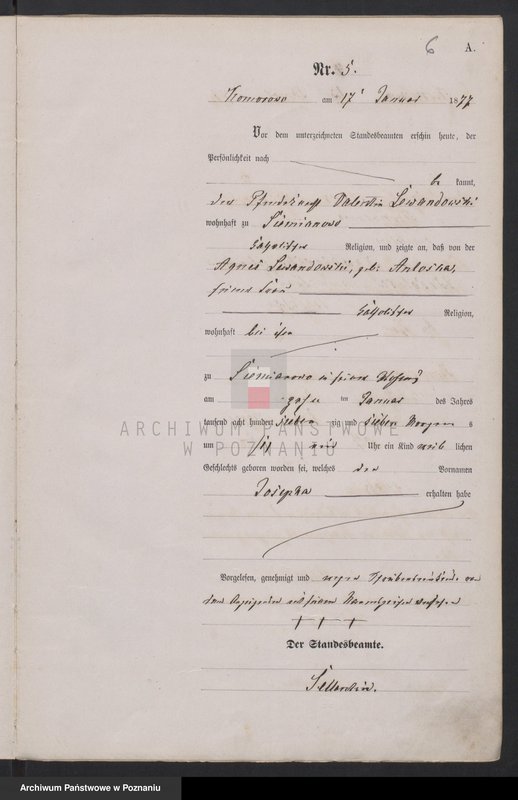 6 A.
Nr. 5.
Komorowo am 17 Januar 1877
Vor dem unterzeichneten Standesbeamten erschien heute, der
Persönlichkeit nach
be kannt,
der Pferdeknecht Valentin Lewandowski
wohnhaft zu Siemianowo
katholischer Religion, und zeigte an, daß von der
Agnes Lewandowski, geb: Antoska,
seiner Frau
katholischer Religion,
wohnhaft bei ihm
zu Siemianowo in seiner Wohnung
am ten Januar des Jahres
tausend acht hundert sieben zig und sieben Morgen s
um Uhr ein Kind weib lichen
Geschlechts geboren worden sei, welches den Vornamen
Josepha erhalten habe
Vorgelesen, genehmigt und wegen von
dem Anzeigenden mit seinem Handzeichen versehen
+ + +
Der Standesbeamte.
ARCHIWUM PAŃSTWOWE
W POZNANIU
Archiwum Państwowe w Poznaniu